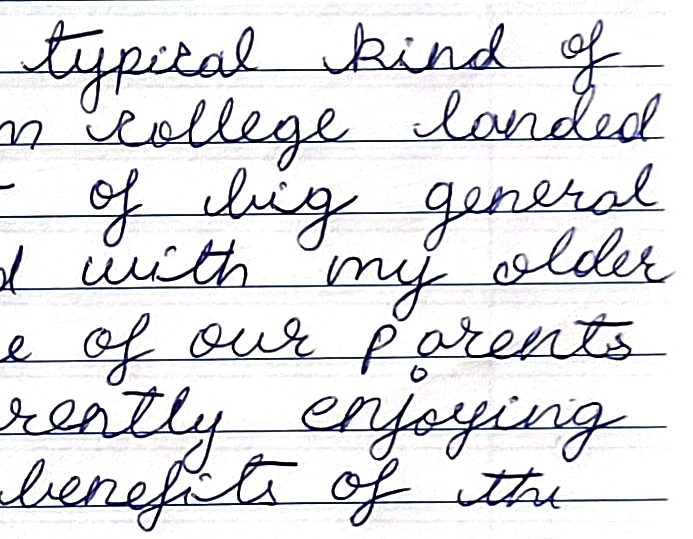 typical kind of
n college landed
of big general
d with my older
e of our parents
rently enjoying
benefits of the